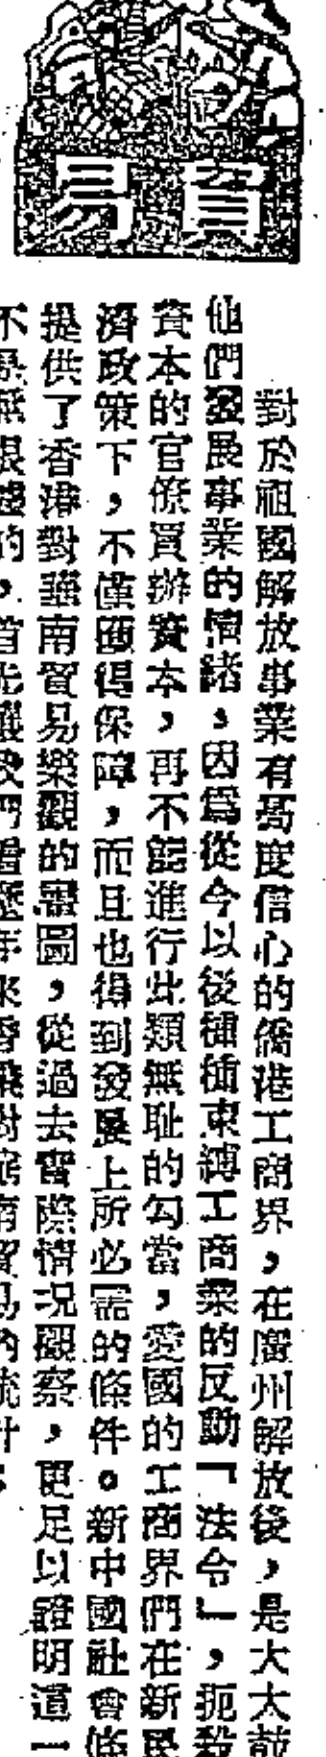 貿易
對於祖國解放事業有高度信心的僑港工商界,在廣州解放後,是大大鼓
他們發展事業的情緒,因為從今以後種種束縛工商業的反動「法令」,扼殺
資本的官僚買辦資本,再不能進行此類無恥的勾當,愛國的工商界們在新民
濟政策下,不僅獲得保障,而且也得到發展上所必需的條件。新中國社會
提供了香港對華南貿易樂觀的遠圖,從過去實際情況觀察,更足以證明這一
不是無根據的,首先讓我們看歷年來香港對華南貿易的統計